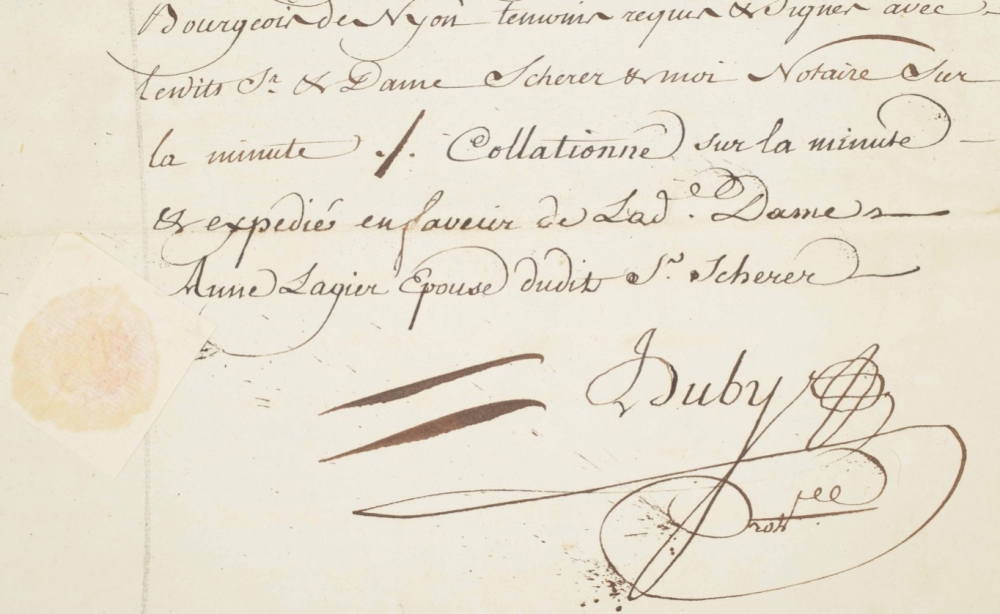 Bourgeois de Nyon temoins requis & signés avec
lesdits Sr. & Dame Scherer & moi Notaire Sur
la minute ./. Collationné sur la minute
& expedié en faveur de Lad.e Dame
Anne Lagier Epouse dudit Sr. Scherer
Duby